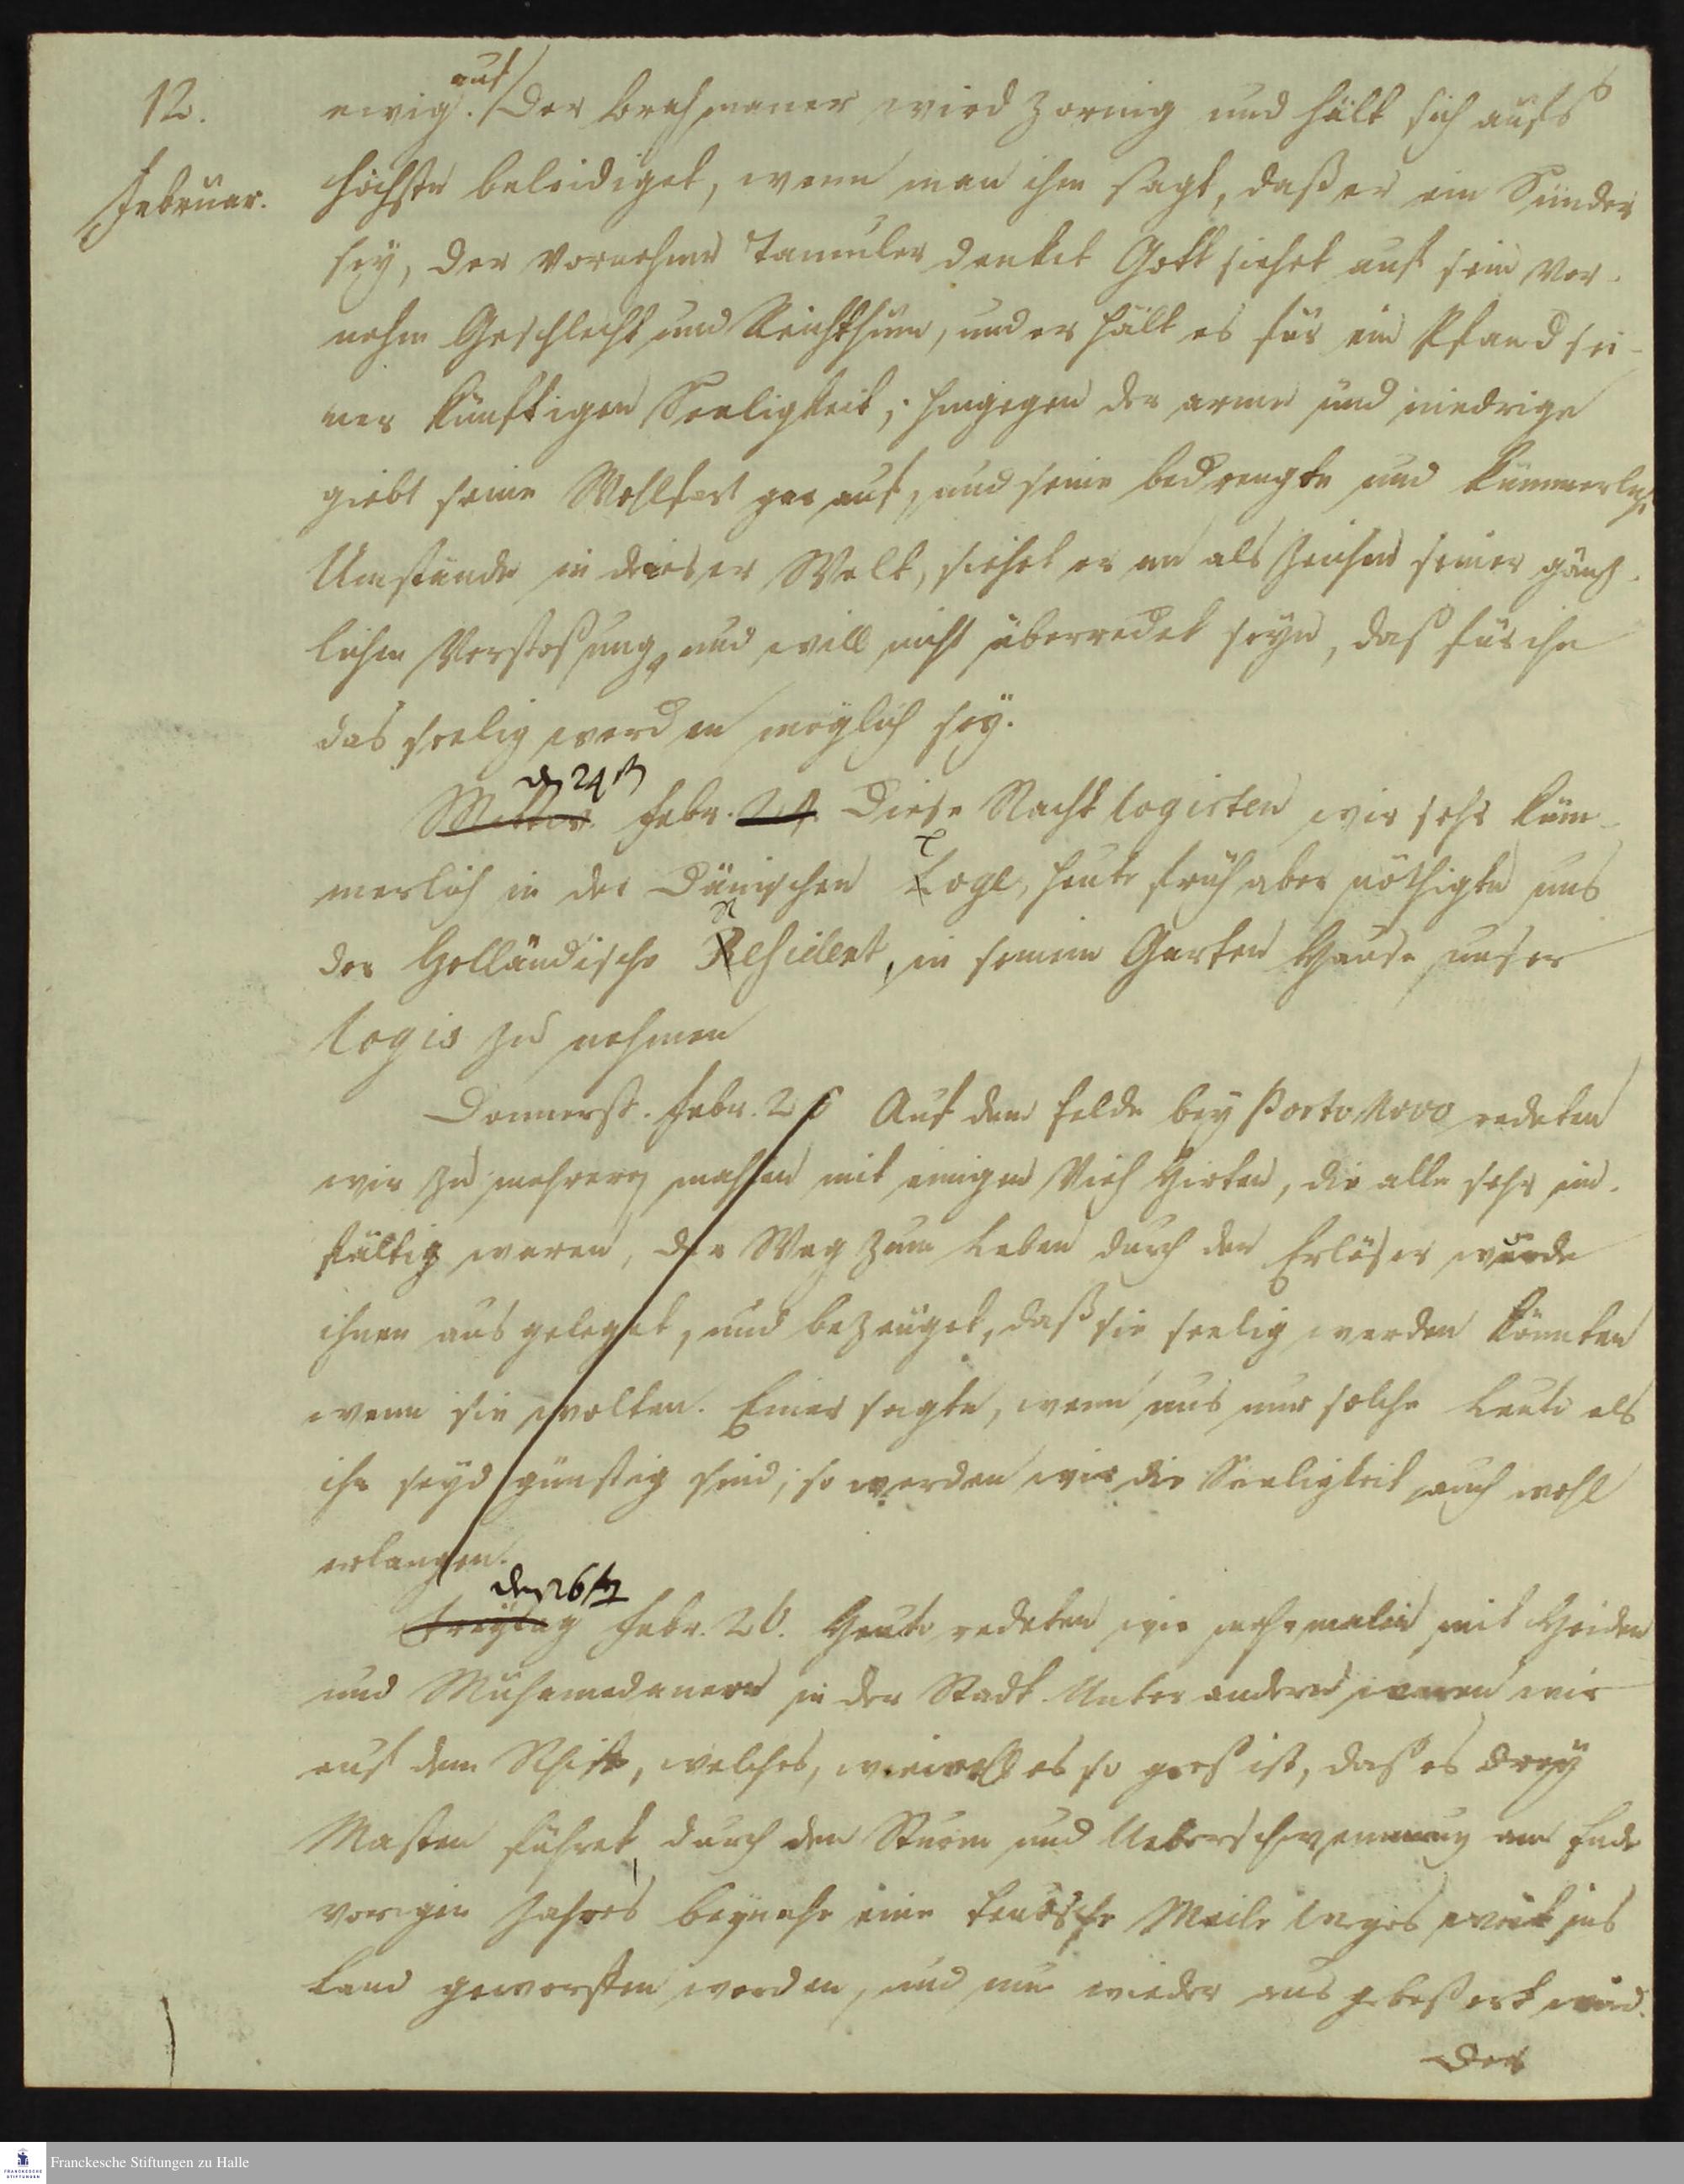 12.
Februar.
auf
ewig. Der Brahmaner wird zornig und hält sich aufs
höchste beleidiget, wenn man ihm sagt, daß er ein Sünder
sey, der vornehme Tamuler denket Gott siehet auf sein vor-
nehm Geschlecht und Reichthum, und er hält es für ein Pfand sei-
ner künftigen Seeligkeit; hingegen der arme und niedrige
giebt seine Wohlfart gar auf, und seine bedrengte und kümmerliche
Umstände in dieser Welt, siehet er an als Zeichen seiner gänz-
lichen Verstoßung, und will nicht überredet seyn, daß für ihn
das seelig werden möglich sey.
den 24st
Mittw. Febr. 24. Diese Nacht logirten wir sehr küm-
merlich in der Dänischen Loge, heute früh aber nöthigte uns
der Holländische Resident, in seinem Garten Hause unser
logis zu nehmen
Donnerst. Febr. 25 Auf dem Felde bey Porto Novo redeten
wir zu mehrern mahlen mit einigen Vieh Hirten, die alle sehr ein-
fältig waren, der Weg zum Leben durch den Erlöser wurde
ihnen ausgeleget, und bezeuget, daß sie seelig werden könnten
wenn sie wolten. Einer sagte, wenn uns nur solche Leute als
ihr seyd günstig sind; so werden wir die Seeligkeit auch wohl
erlangen.
den 26st
Freytag Febr. 26. Heute redeten wir mehrmalen mit Heiden
und Muhamedanern in der Stadt. Unter andern waren wir
auf dem Schiffe, welches, wiewohl es so groß ist, daß es drey
Masten führet, durch den Sturm und Ueberschwemmung am Ende
vorigen Jahres beynahe eine teutsche Meile Weges weit ins
Land geworffen worden, und nun wieder ausgebessert wird.
Der
Franckesche Stiftungen zu Halle